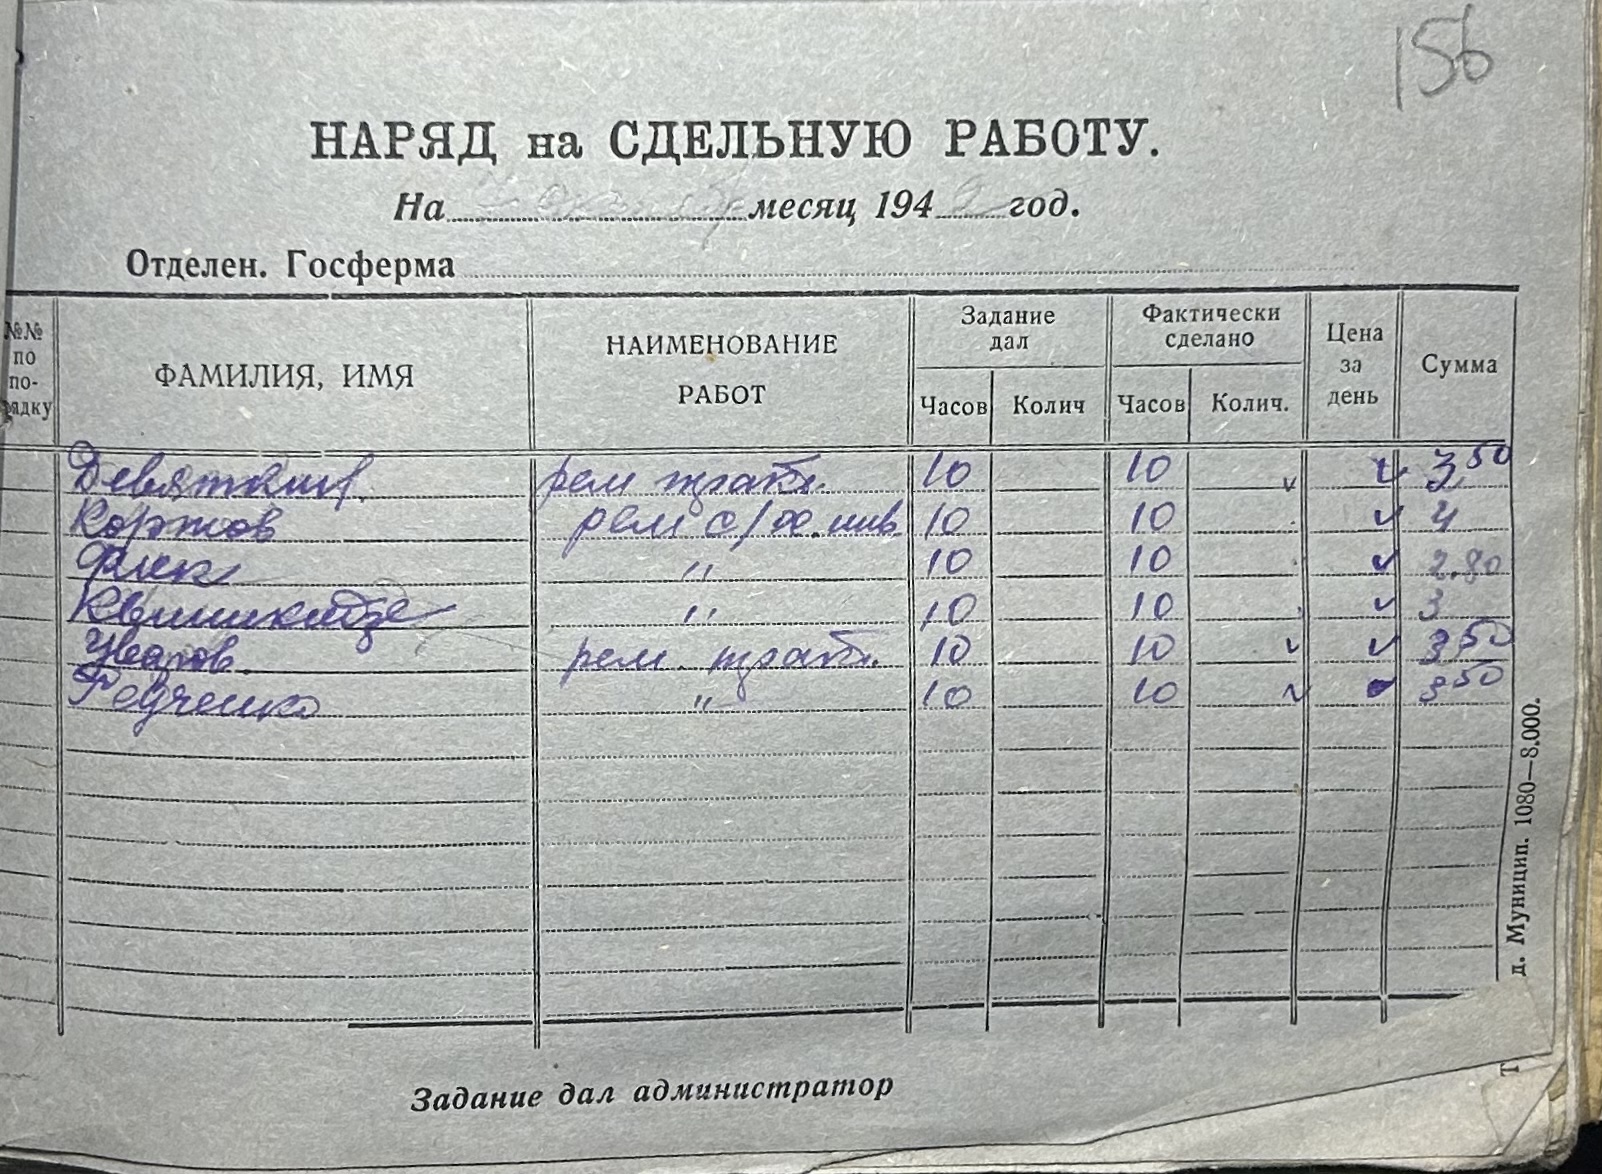 156
НАРЯД на СДЕЛЬНУЮ РАБОТУ.
На 7 октября месяц 1942 год.
Отделен. Госферма
№№ по по-рядку ФАМИЛИЯ, ИМЯ НАИМЕНОВАНИЕ РАБОТ Задание дал Часов Колич Фактически сделано Часов Колич. Цена за день Сумма
Девяткин рем тракт. 10 10 v v 3,50
Коржов рем с/х. инв. 10 10 v 4
Флек " 10 10 v 2.80
Квиникидзе " 10 10 v 3
Уваров рем. тракт. 10 10 v v 3,50
Редченко " 10 10 v 3 50
Задание дал администратор
д. Муницип. 1080—8.000.
Т